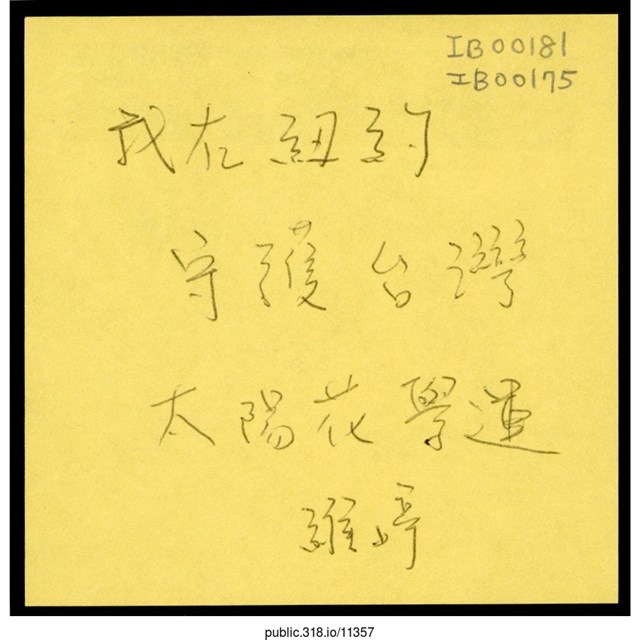 IB00181
IB00175
我在紐約
守護台灣
太陽花學運
維婷
public.318.io/11357